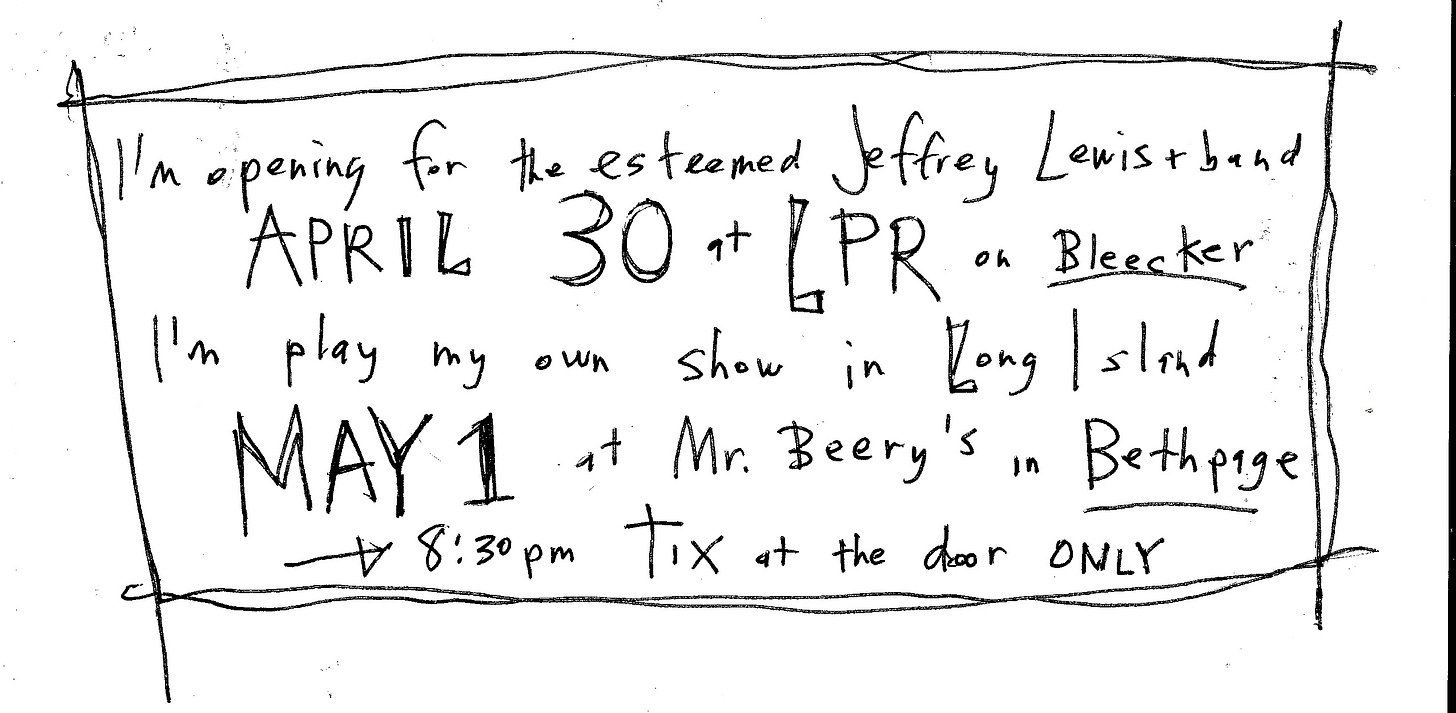 I'm opening for the esteemed Jeffrey Lewis + band
APRIL 30 at LPR on Bleecker
I'm play my own show in Long Island
MAY 1 at Mr. Beery's in Bethpage
→ 8:30pm Tix at the door ONLY